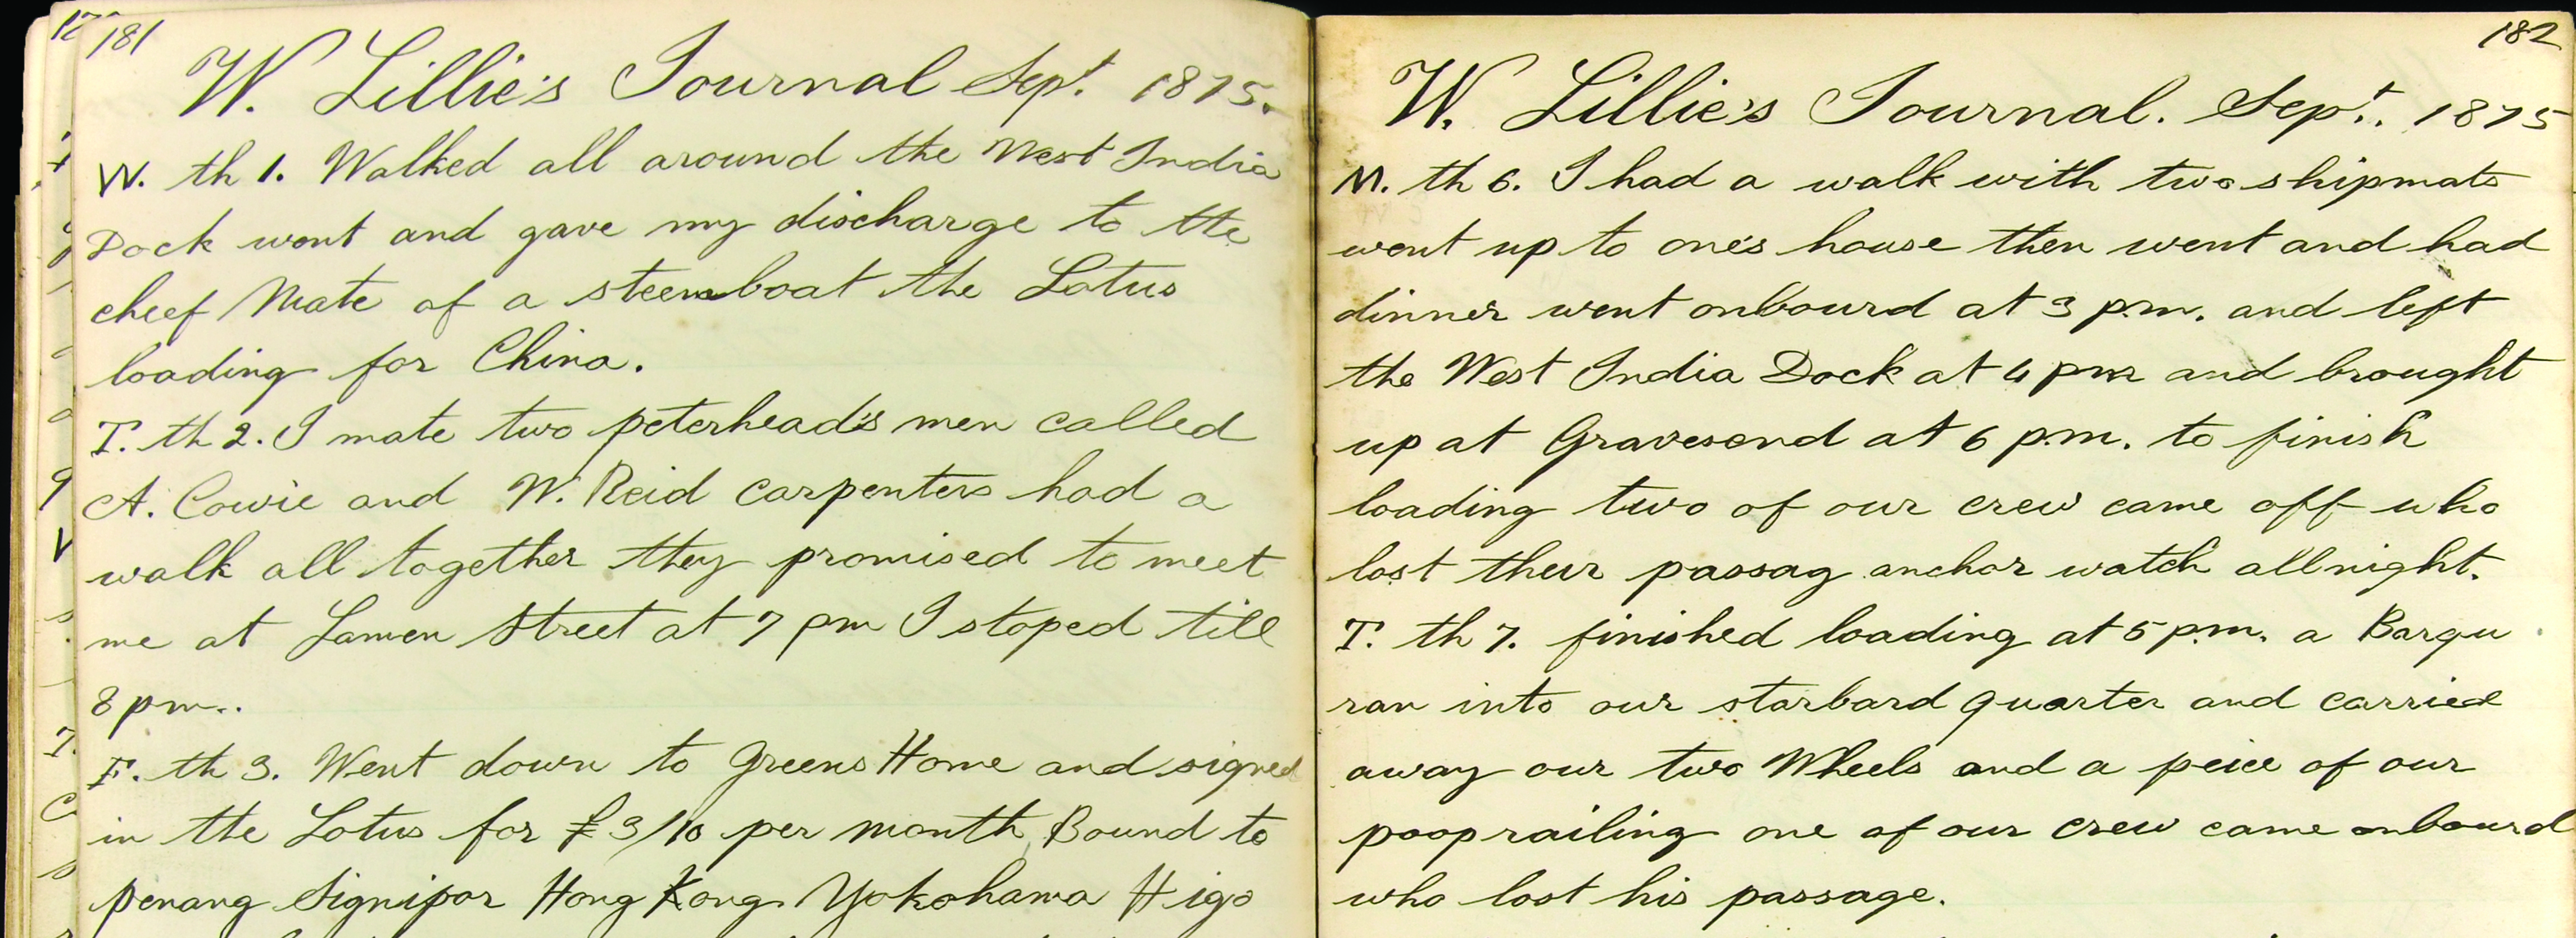 181
W. Lillie's Journal Sept. 1875.
W. th 1. Walked all around the West India
Dock went and gave my discharge to the
cheef Mate of a steemboat the Lotus
loading for China.
T. th 2. I mate two peterhead's men called
A. Cowie and W. Reid carpenters had a
walk all together they promised to meet
me at Lamen Street at 7 pm I stoped till
8 pm..
F. th 3. Went down to Greens Home and signed
in the Lotus for £3/10 per month Bound to
penang Signipor Hong Kong Yokohama Higo
182
W. Lillie's Journal. Sept. 1875
M. th 6. I had a walk with two shipmats
went up to one's house then went and had
dinner went onbourd at 3 p.m. and left
the West India Dock at 4 pm and brought
up at Gravesend at 6 p.m. to finish
loading two of our crew came off who
lost their passag anchor watch allnight.
T. th 7. finished loading at 5 p.m. a Barqu
ran into our storbard quarter and carried
away our two Wheels and a peice of our
poop railing one of our crew came onbourd
who lost his passage.